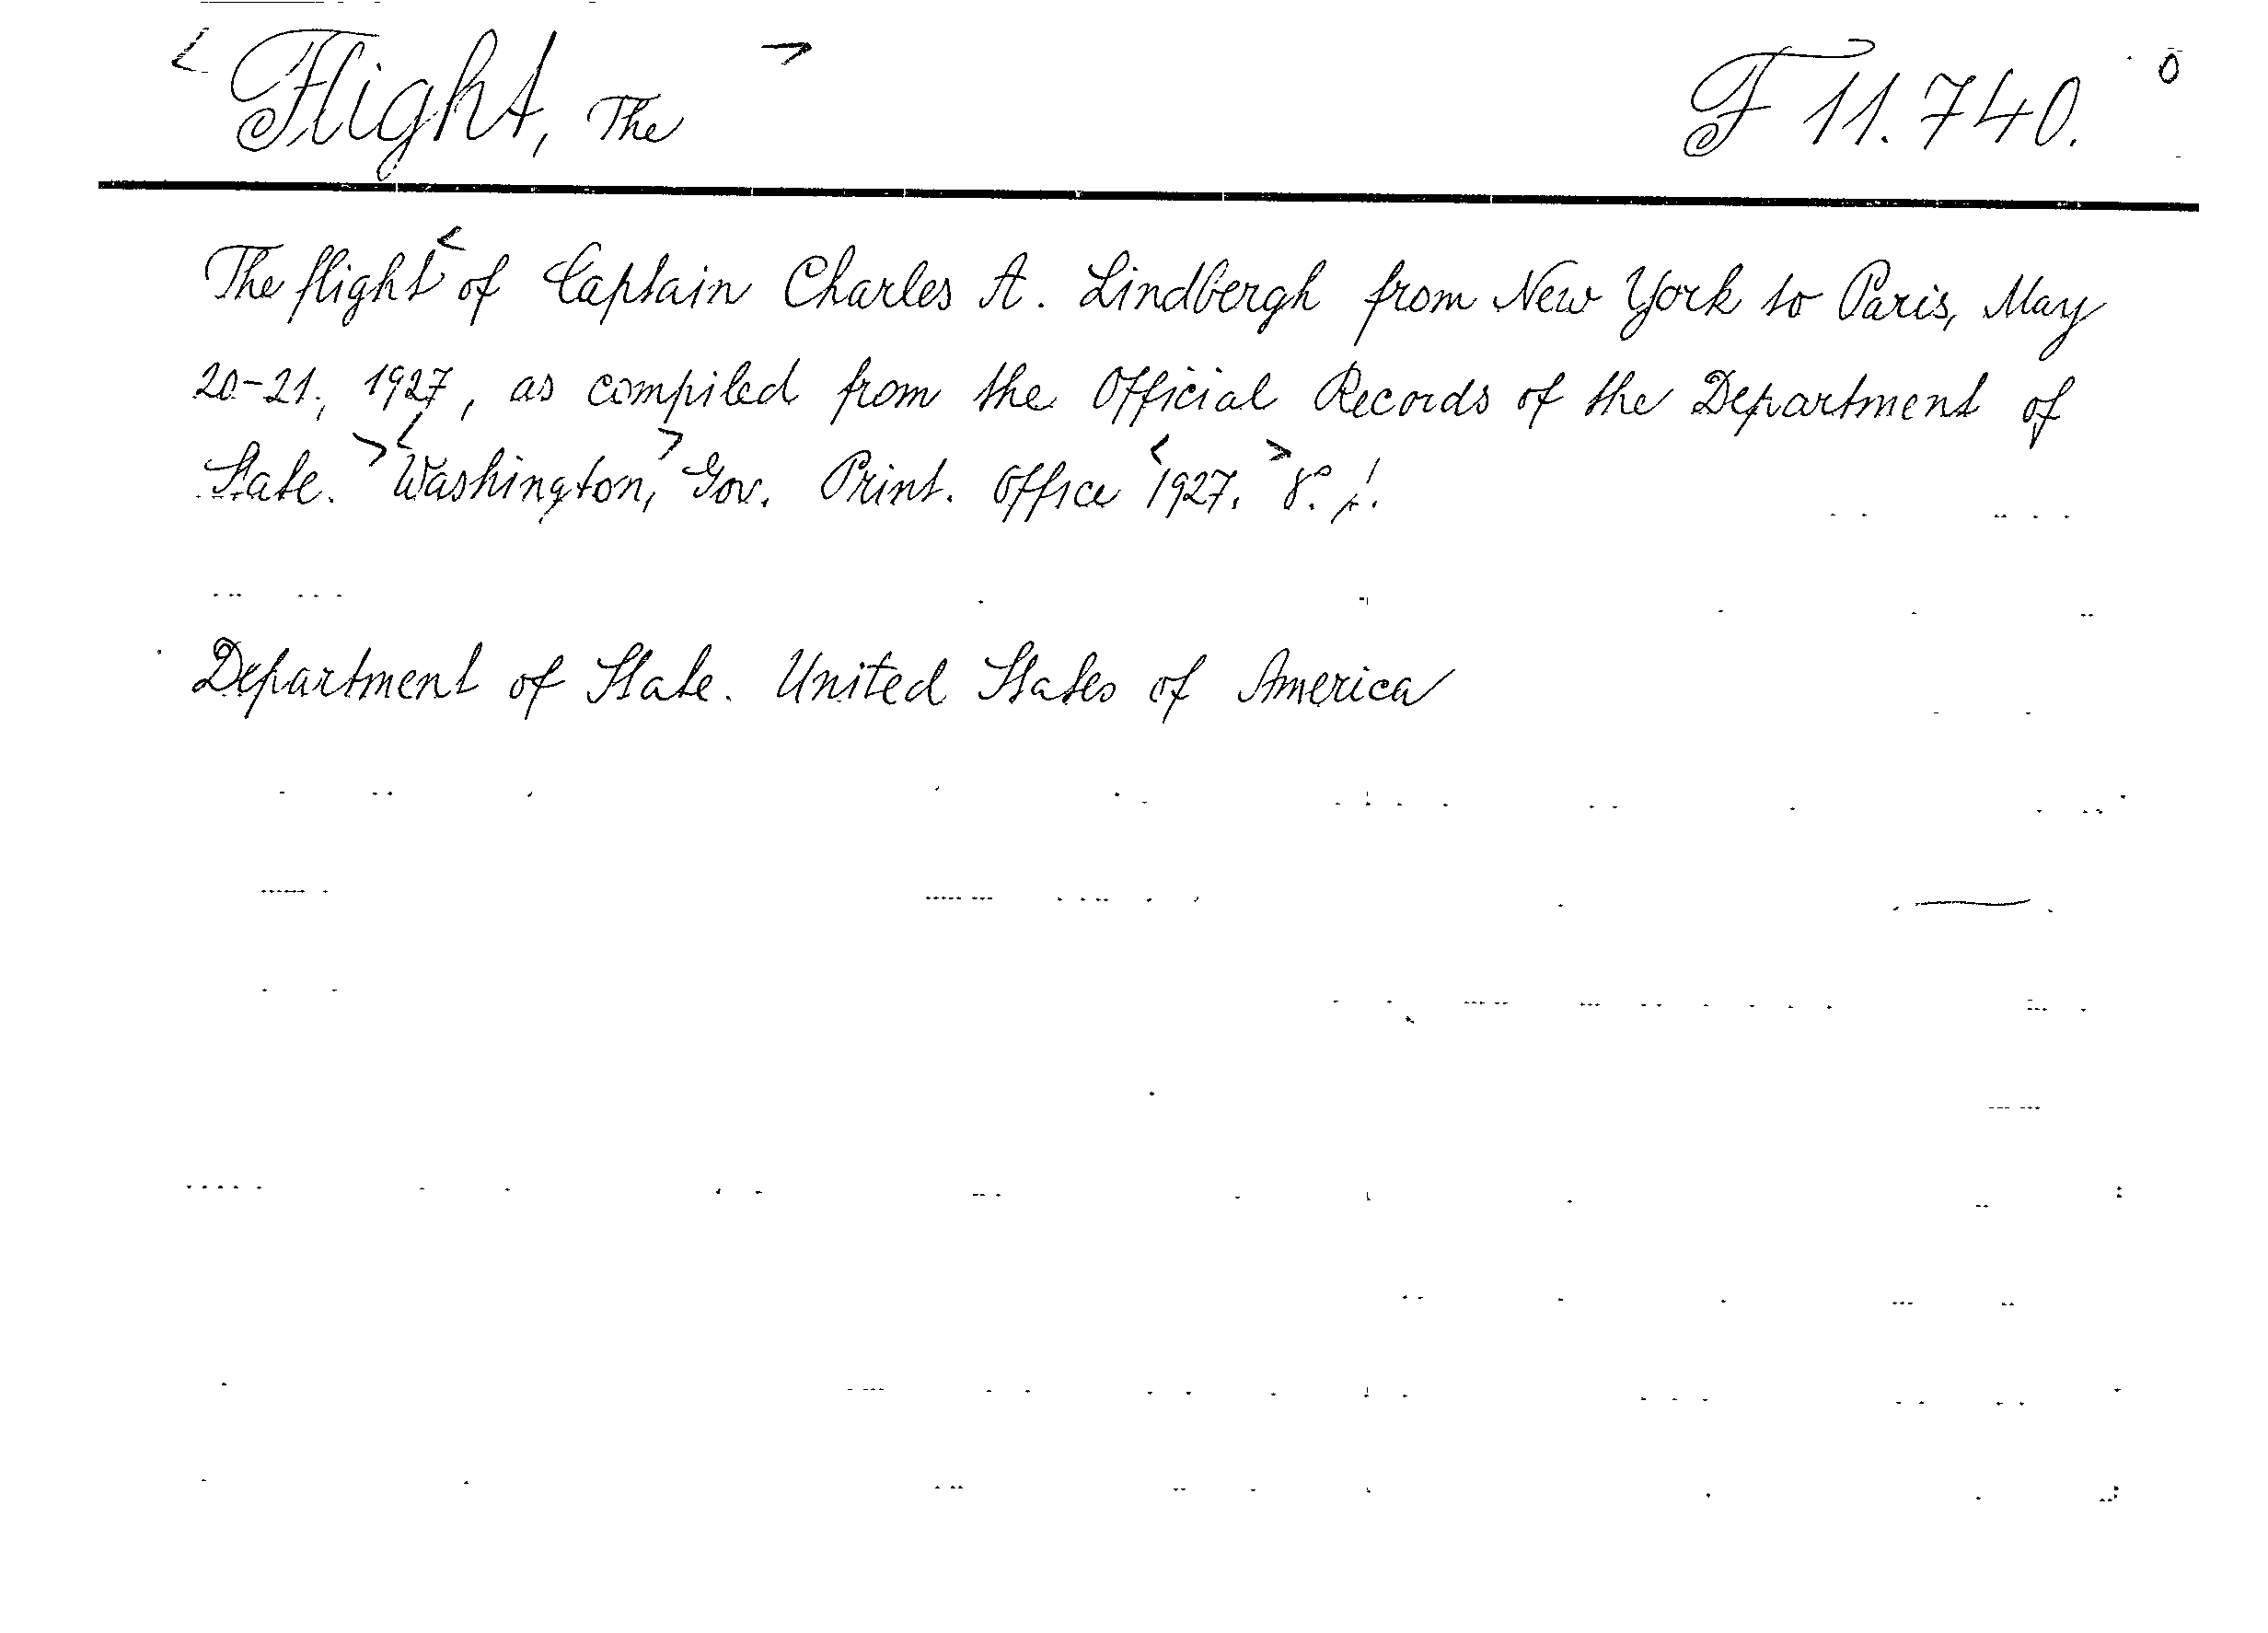 < Flight, The > F 11.740. 0
The flight < of Captain Charles A. Lindbergh from New York to Paris, May
20-21., 1927, as compiled from the Official Records of the Department of
State. > < Washington, > Gov. Print. Office < 1927. > 8°.
Department of State. United States of America